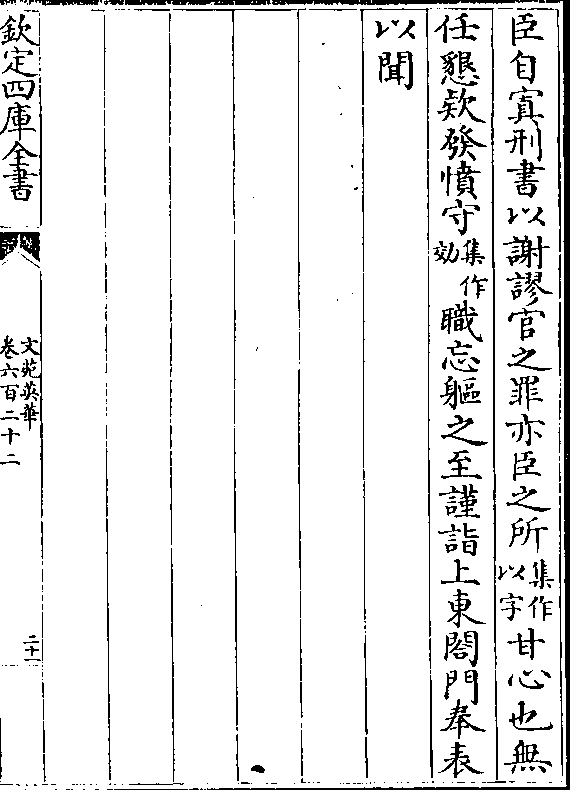 臣自寘刑書以謝謬官之罪亦臣之所集作以字甘心也無
任懇欵發憤守集作効職忘軀之至謹詣上東閤門奉表
以聞
欽定四庫全書
文苑英華
卷六百二十二
二十一